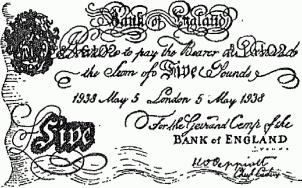 Bank of England
to pay the Bearer
the Sum of Five Pounds
1938 May 5 London 5 May 1938
For the Govr. and Compa. of the
BANK of ENGLAND
Five
Chief Cashier